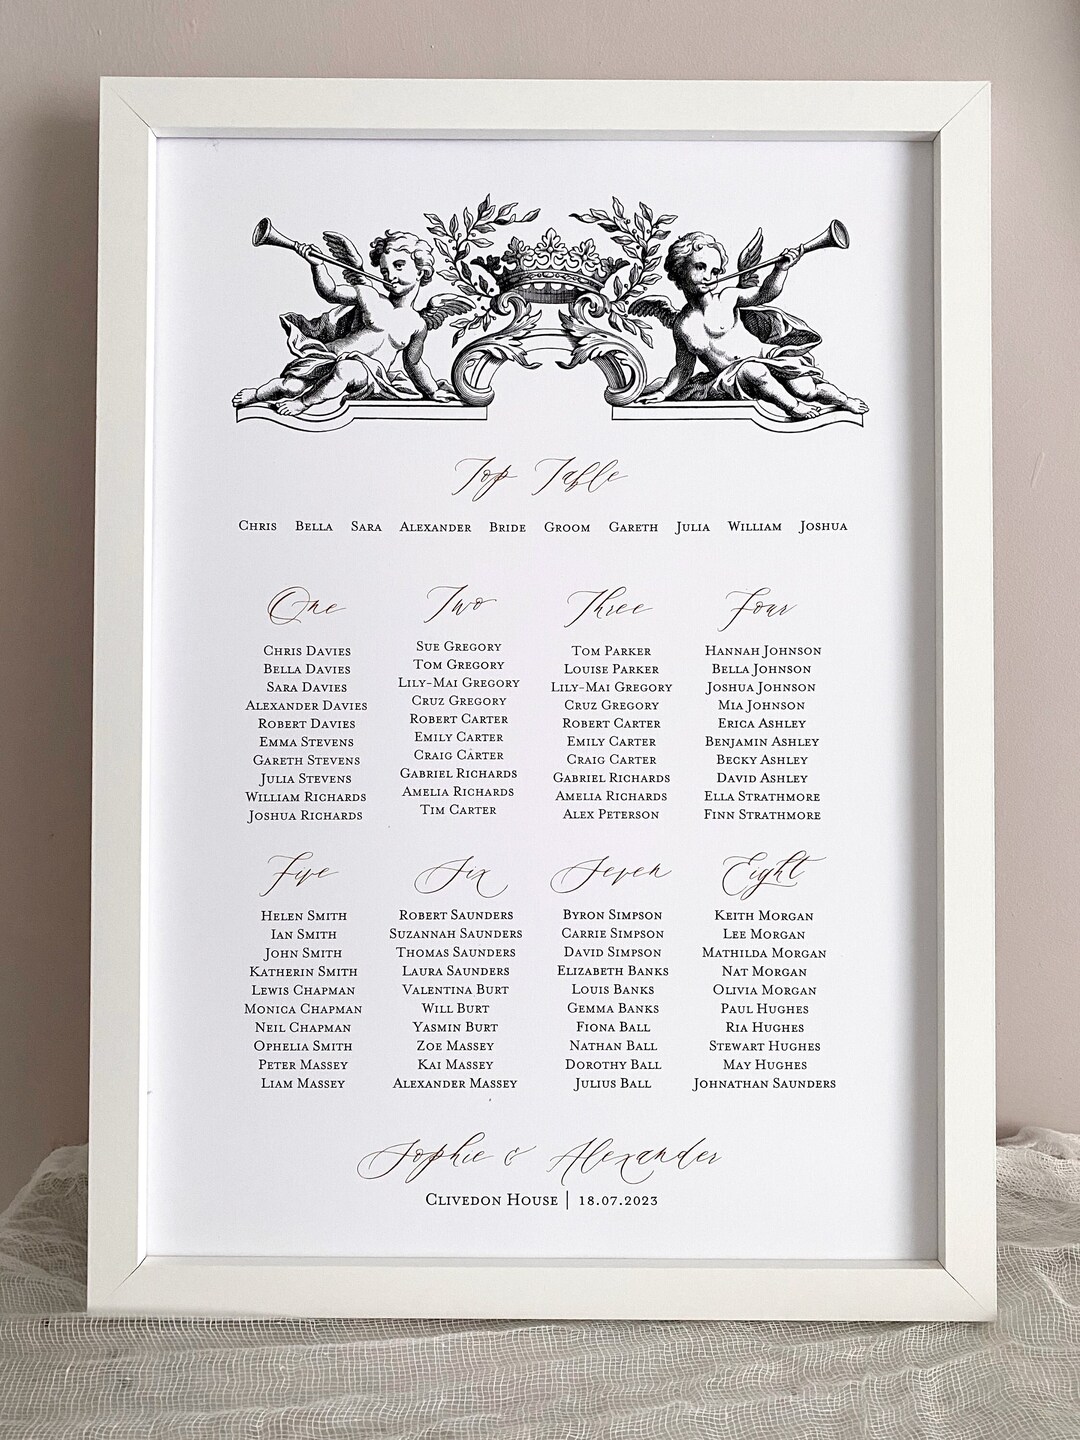 Top Table
Chris Bella Sara Alexander Bride Groom Gareth Julia William Joshua
One
Chris Davies
Bella Davies
Sara Davies
Alexander Davies
Robert Davies
Emma Stevens
Gareth Stevens
Julia Stevens
William Richards
Joshua Richards
Two
Sue Gregory
Tom Gregory
Lily-Mai Gregory
Cruz Gregory
Robert Carter
Emily Carter
Craig Carter
Gabriel Richards
Amelia Richards
Tim Carter
Three
Tom Parker
Louise Parker
Lily-Mai Gregory
Cruz Gregory
Robert Carter
Emily Carter
Craig Carter
Gabriel Richards
Amelia Richards
Alex Peterson
Four
Hannah Johnson
Bella Johnson
Joshua Johnson
Mia Johnson
Erica Ashley
Benjamin Ashley
Becky Ashley
David Ashley
Ella Strathmore
Finn Strathmore
Five
Helen Smith
Ian Smith
John Smith
Katherin Smith
Lewis Chapman
Monica Chapman
Neil Chapman
Ophelia Smith
Peter Massey
Liam Massey
Six
Robert Saunders
Suzannah Saunders
Thomas Saunders
Laura Saunders
Valentina Burt
Will Burt
Yasmin Burt
Zoe Massey
Kai Massey
Alexander Massey
Seven
Byron Simpson
Carrie Simpson
David Simpson
Elizabeth Banks
Louis Banks
Gemma Banks
Fiona Ball
Nathan Ball
Dorothy Ball
Julius Ball
Eight
Keith Morgan
Lee Morgan
Mathilda Morgan
Nat Morgan
Olivia Morgan
Paul Hughes
Ria Hughes
Stewart Hughes
May Hughes
Johnathan Saunders
Sophie & Alexander
Clivedon House | 18.07.2023